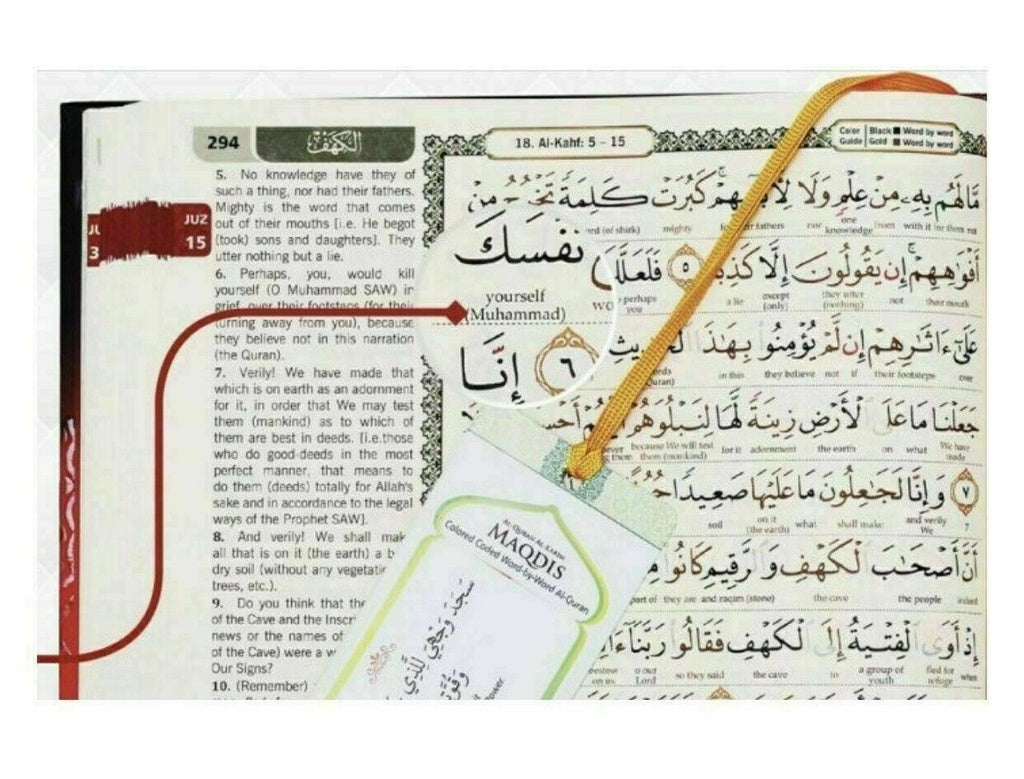 294
الكهف
18. Al-Kahf: 5 – 15
Color Guide
Black ■ Word by word
Gold ■ Word by word
JUZ
15
5. No knowledge have they of
such a thing, nor had their fathers.
Mighty is the word that comes
out of their mouths [i.e. He begot
(took) sons and daughters]. They
utter nothing but a lie.
6. Perhaps, you, would kill
yourself (O Muhammad SAW) in
grief, over their footsteps (for their
turning away from you), because
they believe not in this narration
(the Quran).
7. Verily! We have made that
which is on earth as an adornment
for it, in order that We may test
them (mankind) as to which of
them are best in deeds. [i.e.those
who do good-deeds in the most
perfect manner, that means to
do them (deeds) totally for Allah's
sake and in accordance to the legal
ways of the Prophet SAW].
8. And verily! We shall mak
all that is on it (the earth) a b
dry soil (without any vegetati
trees, etc.).
9. Do you think that the
of the Cave and the Inscri
news or the names of
of the Cave) were a w
Our Signs?
10. (Remember)
مَّا لَهُم بِهِۦ مِنْ عِلْمٍ وَلَا كَبُرَتْ كَلِمَةً تَخْرُجُ مِنْ
mighty fathers nor one knowledge from with it for them
أَفْوَٰهِهِمْ إِن يَقُولُونَ إِلَّا كَذِبًا ٥ فَلَعَلَّكَ
perhaps you a lie except (only) they utter (nothing) not their mouth
نَفْسَكَ
yourself
(Muhammad)
عَلَىٰٓ ءَاثَٰرِهِمْ إِن لَّمْ يُؤْمِنُوا۟ بِهَٰذَا
in this they believe not if their footsteps over
٦ إِنَّا
جَعَلْنَا مَا عَلَى ٱلْأَرْضِ زِينَةً لَّهَا لِنَبْلُوَهُمْ
because We will test them (mankind) for it adornment the earth on what We have made
٧ وَإِنَّا لَجَٰعِلُونَ مَا عَلَيْهَا صَعِيدًا
soil on it (the earth) what shall make and verily We 7
أَنَّ أَصْحَٰبَ ٱلْكَهْفِ وَٱلرَّقِيمِ كَانُوا۟
part of they are and raqim (stone) the cave the people indeed
إِذْ أَوَى ٱلْفِتْيَةُ إِلَى ٱلْكَهْفِ فَقَالُوا۟ رَبَّنَآ
bestow on us o our Lord so they said the cave to a group of youth fled for refuge when
AL-QURAN AL-KARIM
MAQDIS
Colored Coded Word-by-Word Al-Quran
سَجَدَ وَجْهِيَ لِلَّذِي